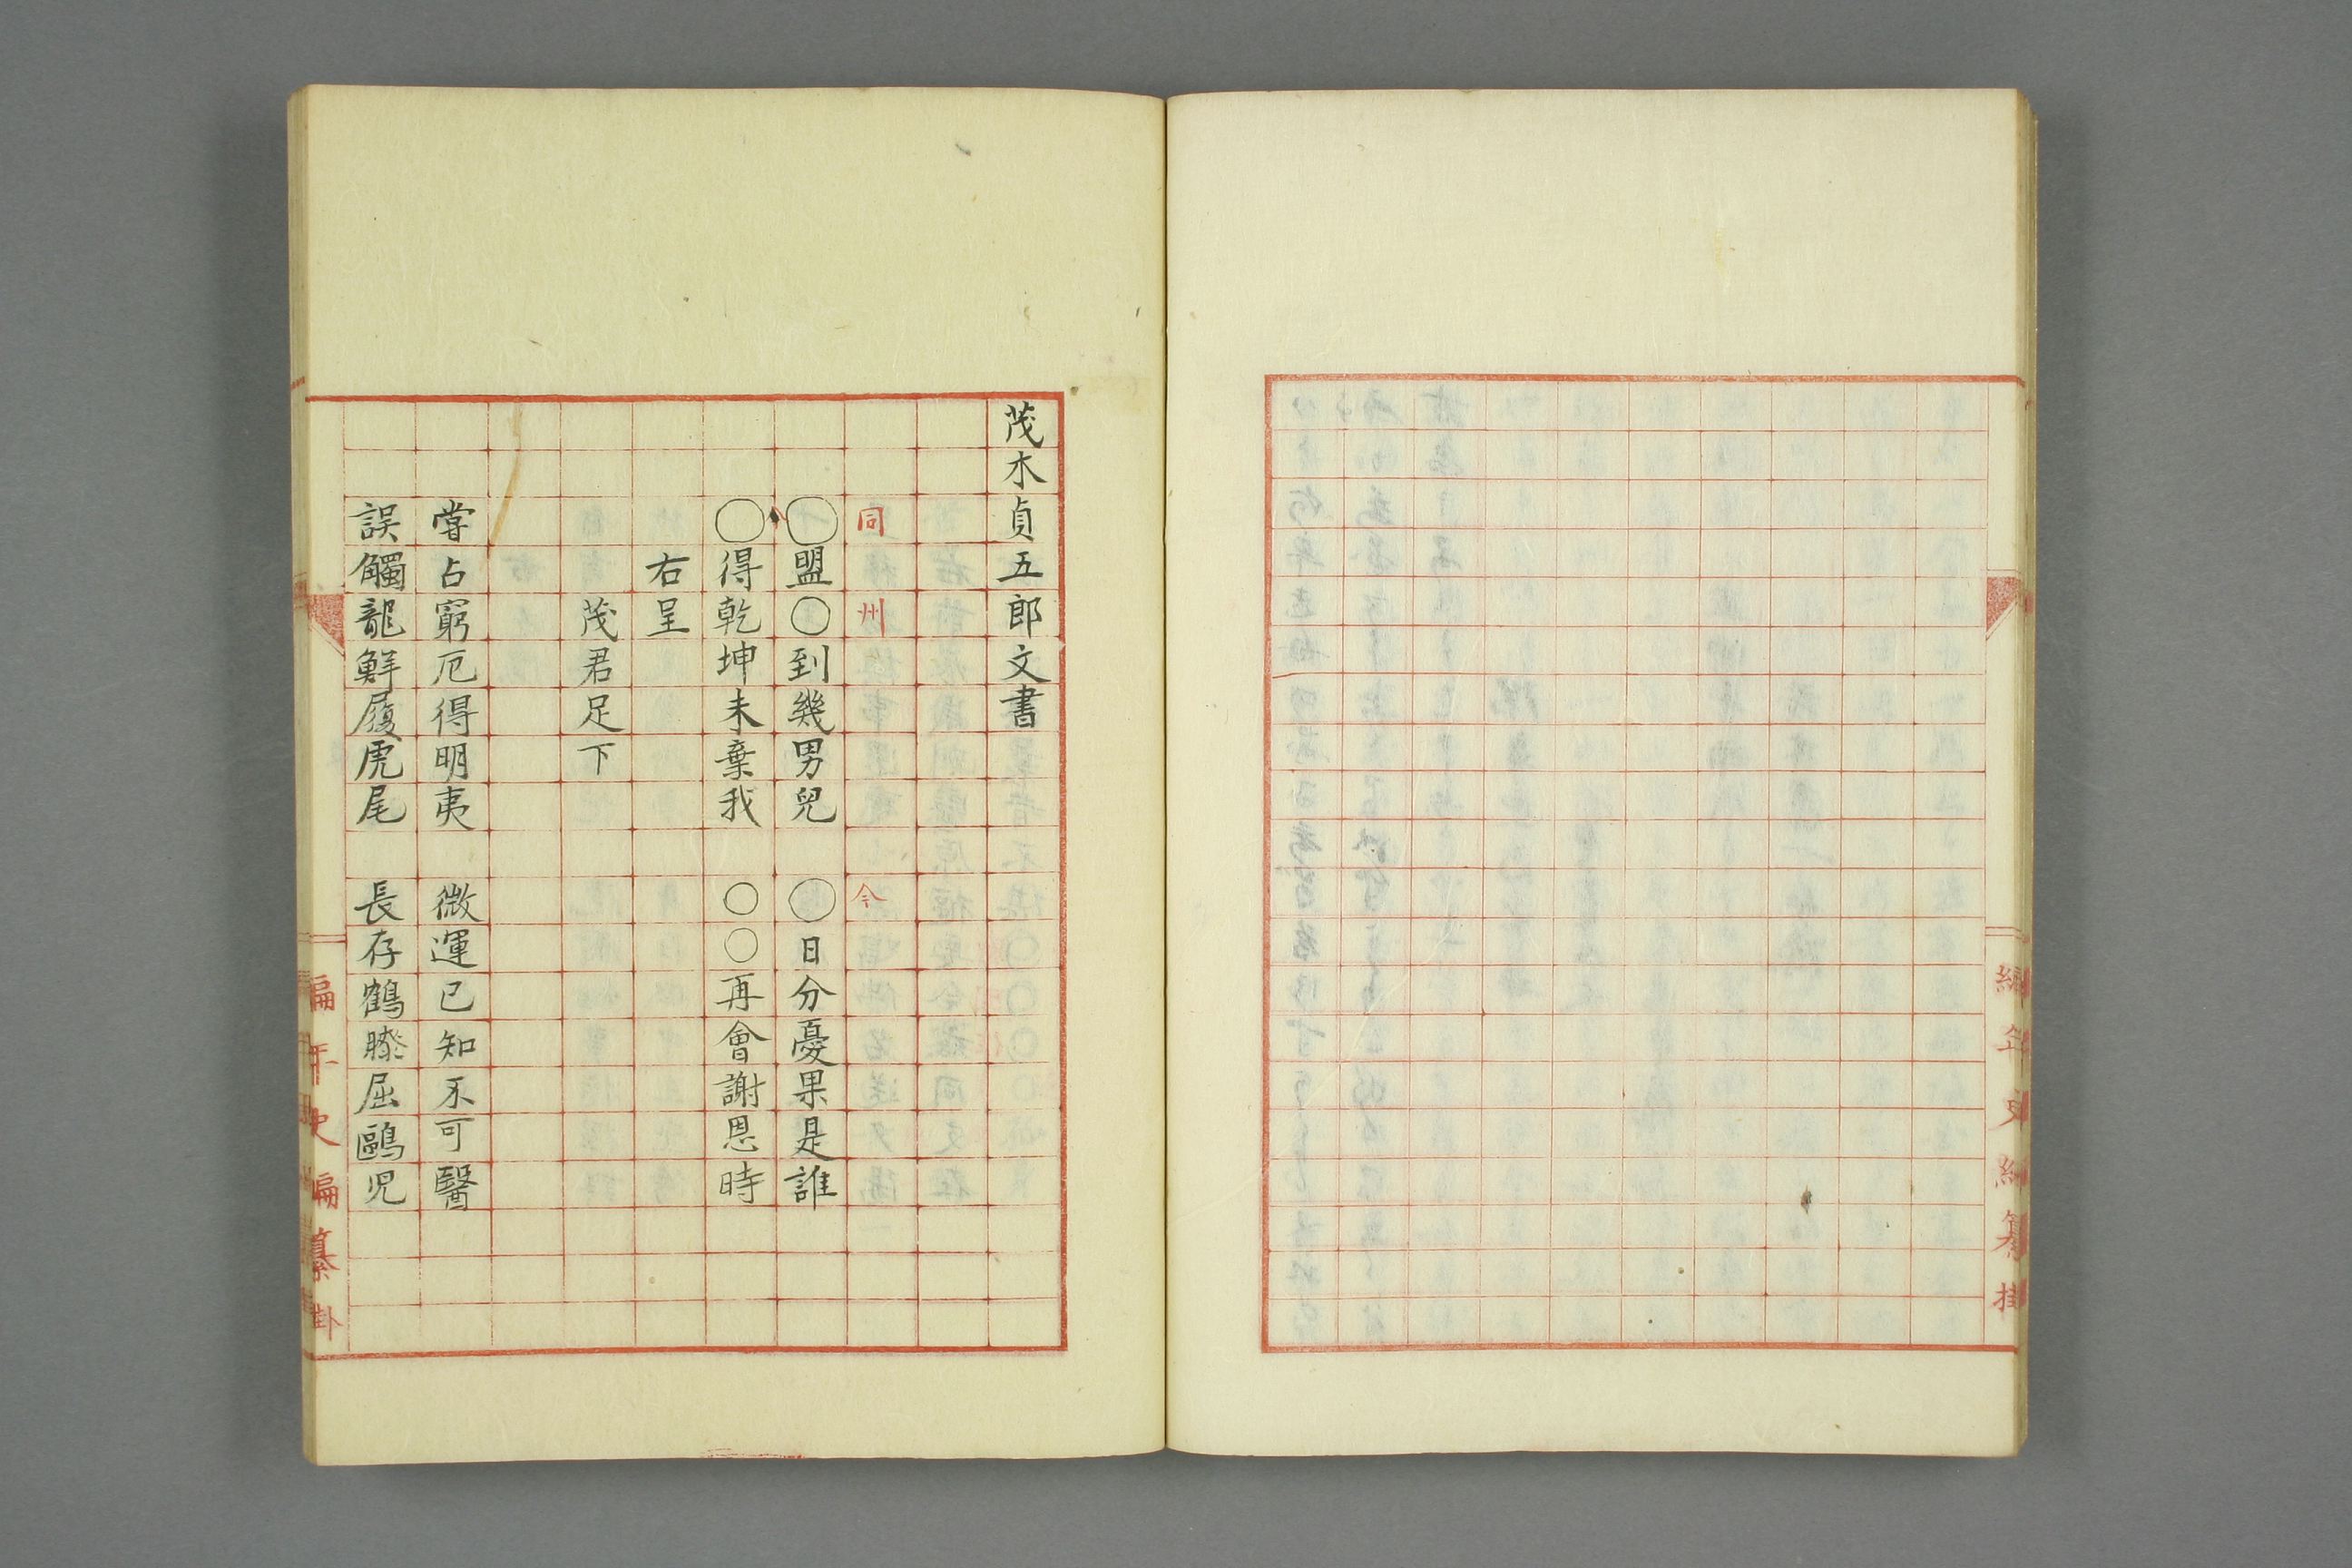 茂木貞五郎文書
同 州 今
〇盟〇到幾男兒 〇日分憂果是誰
〇得乾坤未棄我 〇〇再會謝恩時
右呈
茂君足下
嘗占窮厄得明夷 微運已知不可醫
誤觸龍鮮履虎尾 長存鶴膝屈鷗児